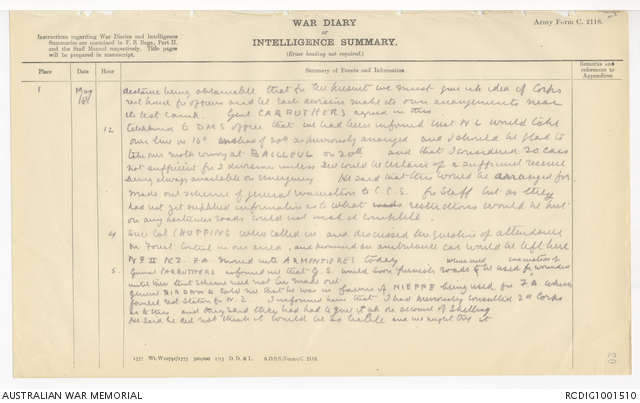 WAR DIARY
or
INTELLIGENCE SUMMARY.
(Erase heading not required.)
Army Form C. 2118.
Instructions regarding War Diaries and Intelligence
Summaries are contained in F. S. Regs., Part II.
and the Staff Manual respectively. Title pages
will be prepared in manuscript.
Place
Date
Hour
Summary of Events and Information
Remarks and
references to
Appendices
May
being obtainable that for the present we must give up idea of Corps
rest hand for officers and let each division make its own arrangements near
its rest camp. Genl CARRUTHERS agreed in this
12 Telephoned to DMS office that we had been informed that N.Z. would take
over line on 16th instead of 20th as previously arranged and I should be glad to
take over motor convoy at BAILLEUL on 20th and that I considered 20 cars
not sufficient for 2 divisions unless we could be certain of a sufficient reserve
being always available on emergency. He said that this would be arranged for
Made out scheme of general evacuation to C.C.S. for Staff but as they
had not yet supplied information as to what restrictions would be put
on any particular roads could not make it complete.
4 Col CHOPPING called in and discussed the question of attendance
on Front Control in our area, and promised an ambulance car would be left here
No II N.Z. F.A moved into ARMENTIERES today
5. General CARRUTHERS informed me that G.S. would soon furnish roads to be used for wounded
until then that scheme could not be made out.
General BIRDWOOD told me that he was in favour of NIEPPE being used for F.A when
formed rest station for N.Z. I informed him that I had previously consulted 2nd Corps
as to this and they said they had had to give it up on account of shelling
He said he did not think it would be so liable and we might try it
1577 Wt.W10791/1773 500,000 1/15 D. D. & L. A.D.S.S./Forms/C. 2118.
AUSTRALIAN WAR MEMORIAL
RCDIG1001510